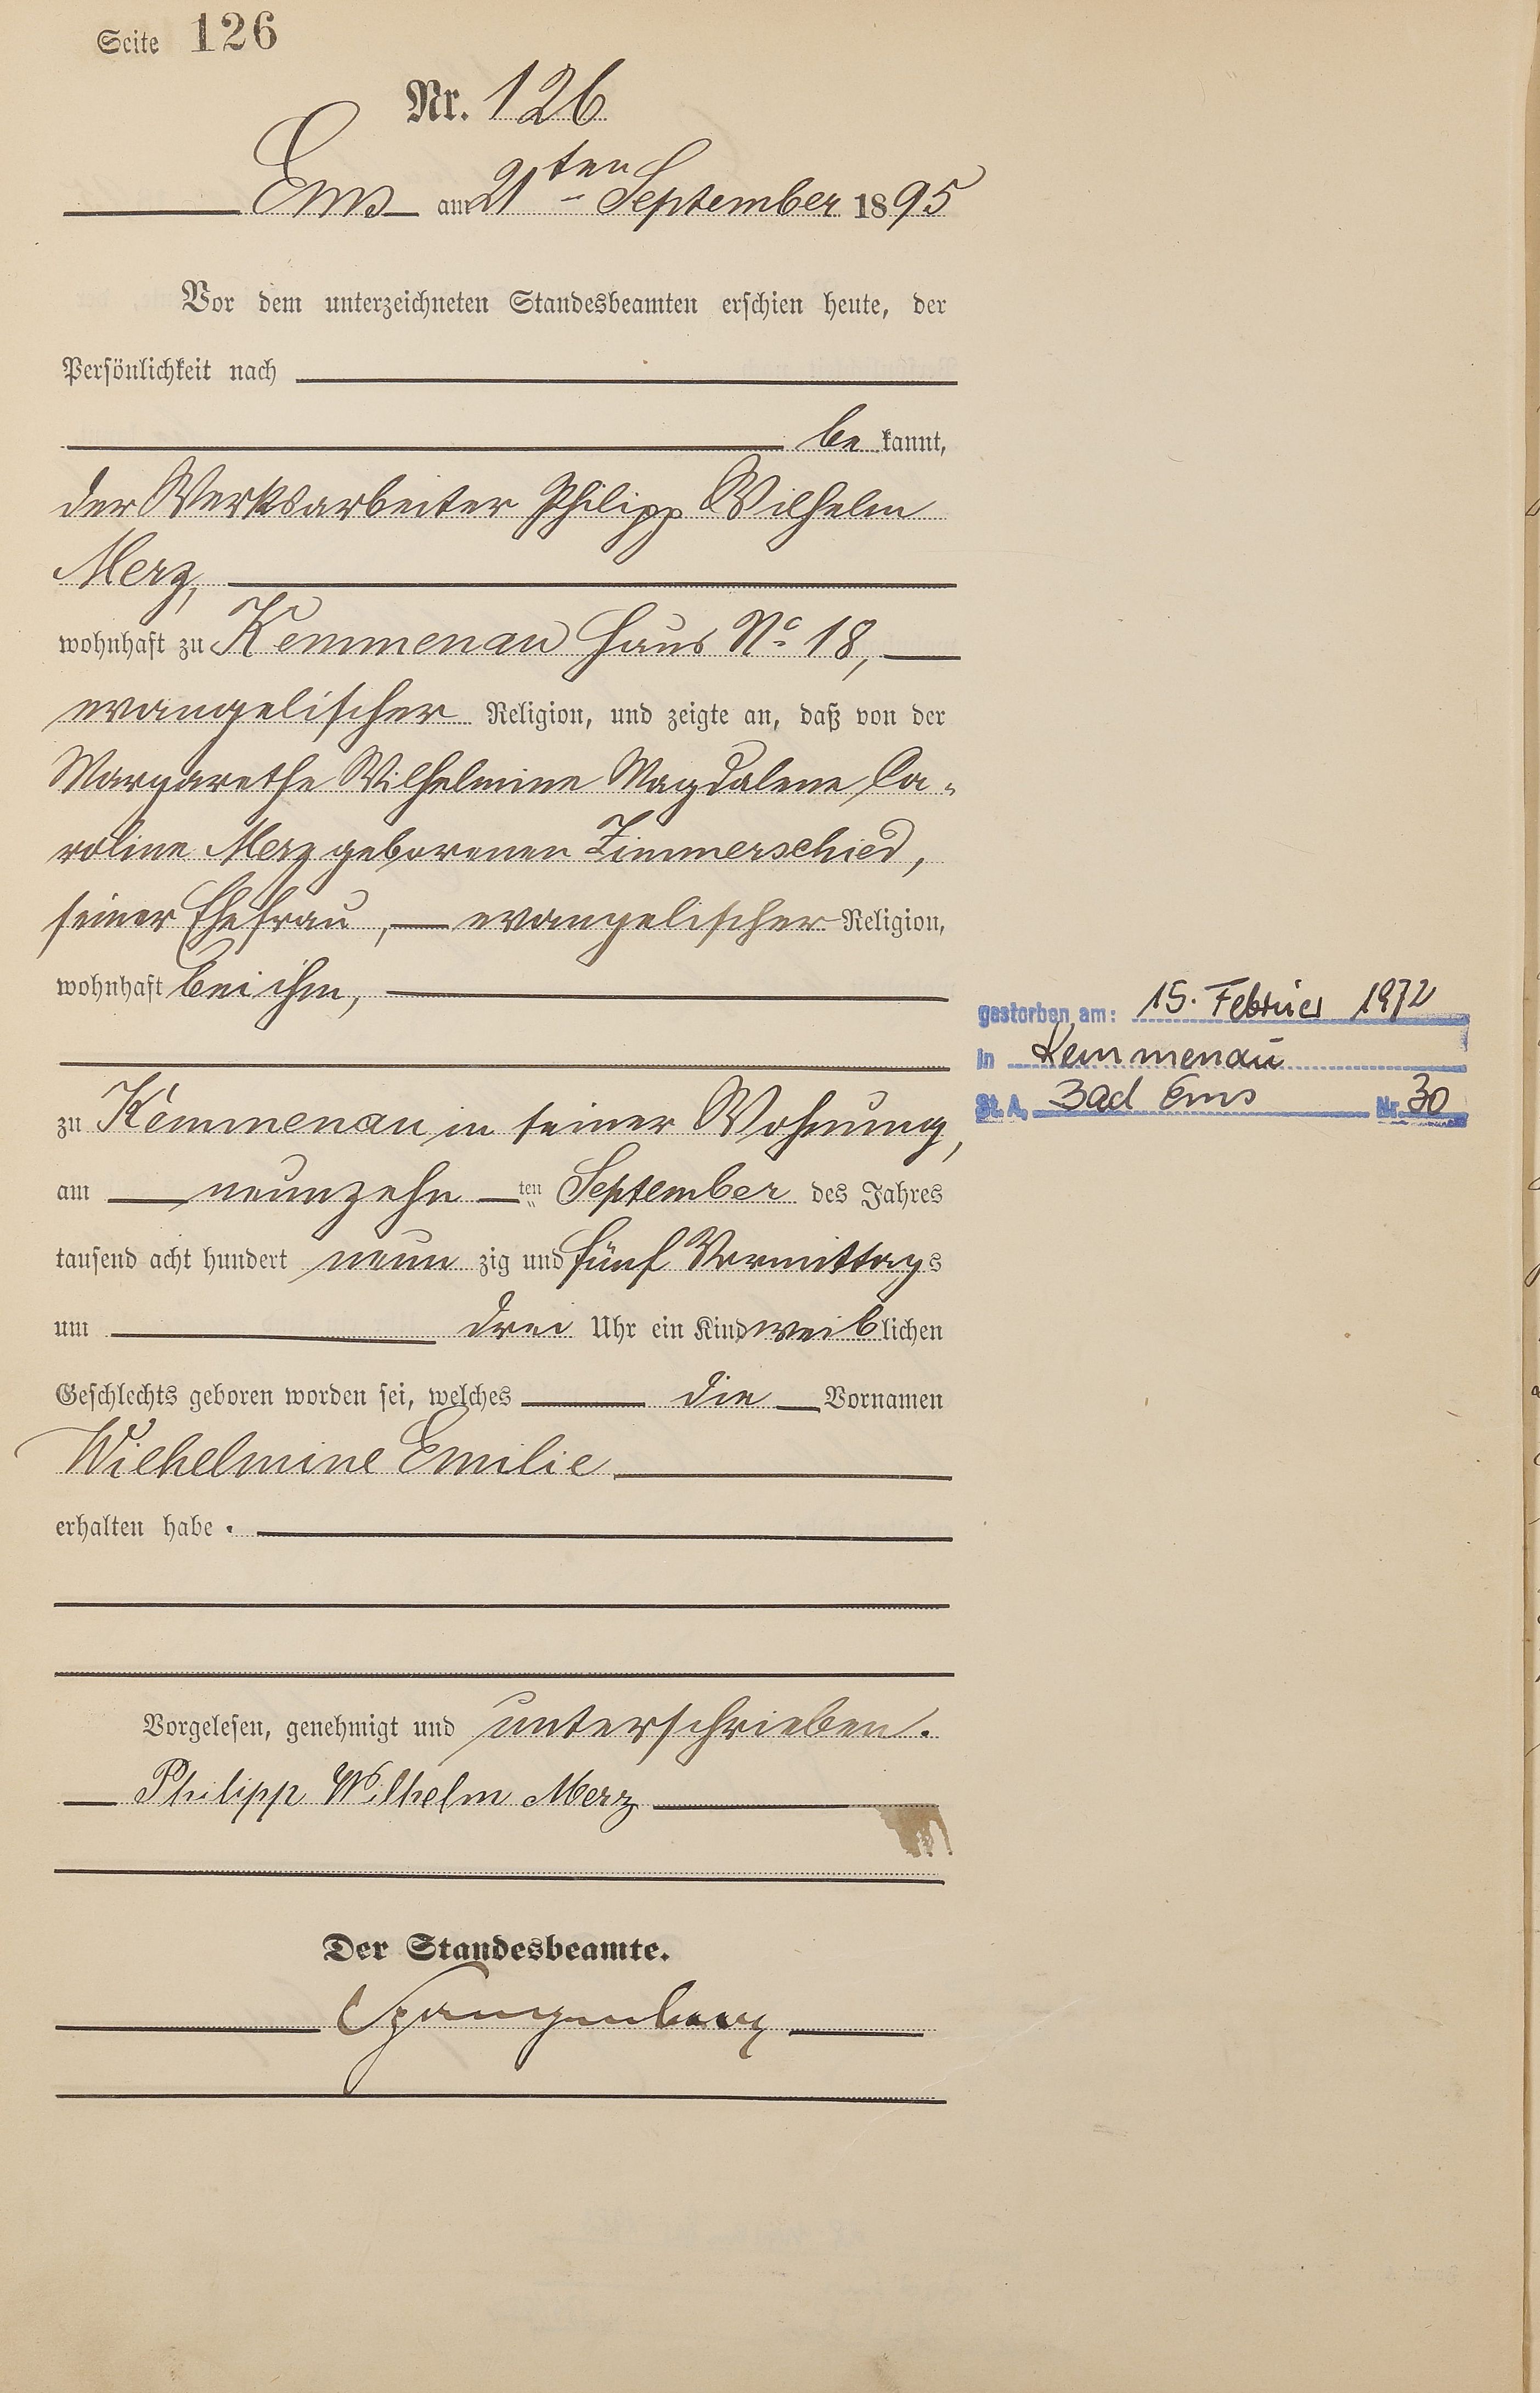 Seite 126
Nr. 126
Ems am 21ten September 1895
Vor dem unterzeichneten Standesbeamten erschien heute, der
Persönlichkeit nach
be kannt,
der Werksarbeiter Philipp Wilhelm
Merz,
wohnhaft zu Kemmenau Haus No 18,
evangelischer Religion, und zeigte an, daß von der
Margarethe Wilhelmine Magdalene Ca-
roline Merz geborenen Zimmerschied,
seiner Ehefrau, evangelischer Religion,
wohnhaft bei ihm,
zu Kemmenau in seiner Wohnung,
am neunzehn ten September des Jahres
tausend acht hundert neun zig und fünf Vormittags
um drei Uhr ein Kind weiblichen
Geschlechts geboren worden sei, welches die Vornamen
Wilhelmine Emilie
erhalten habe.
Vorgelesen, genehmigt und unterschrieben.
Philipp Wilhelm Merz
Der Standesbeamte.
Spangenberg
gestorben am: 15. Februar 1972
in Kemmenau
St. A. Bad Ems Nr. 30